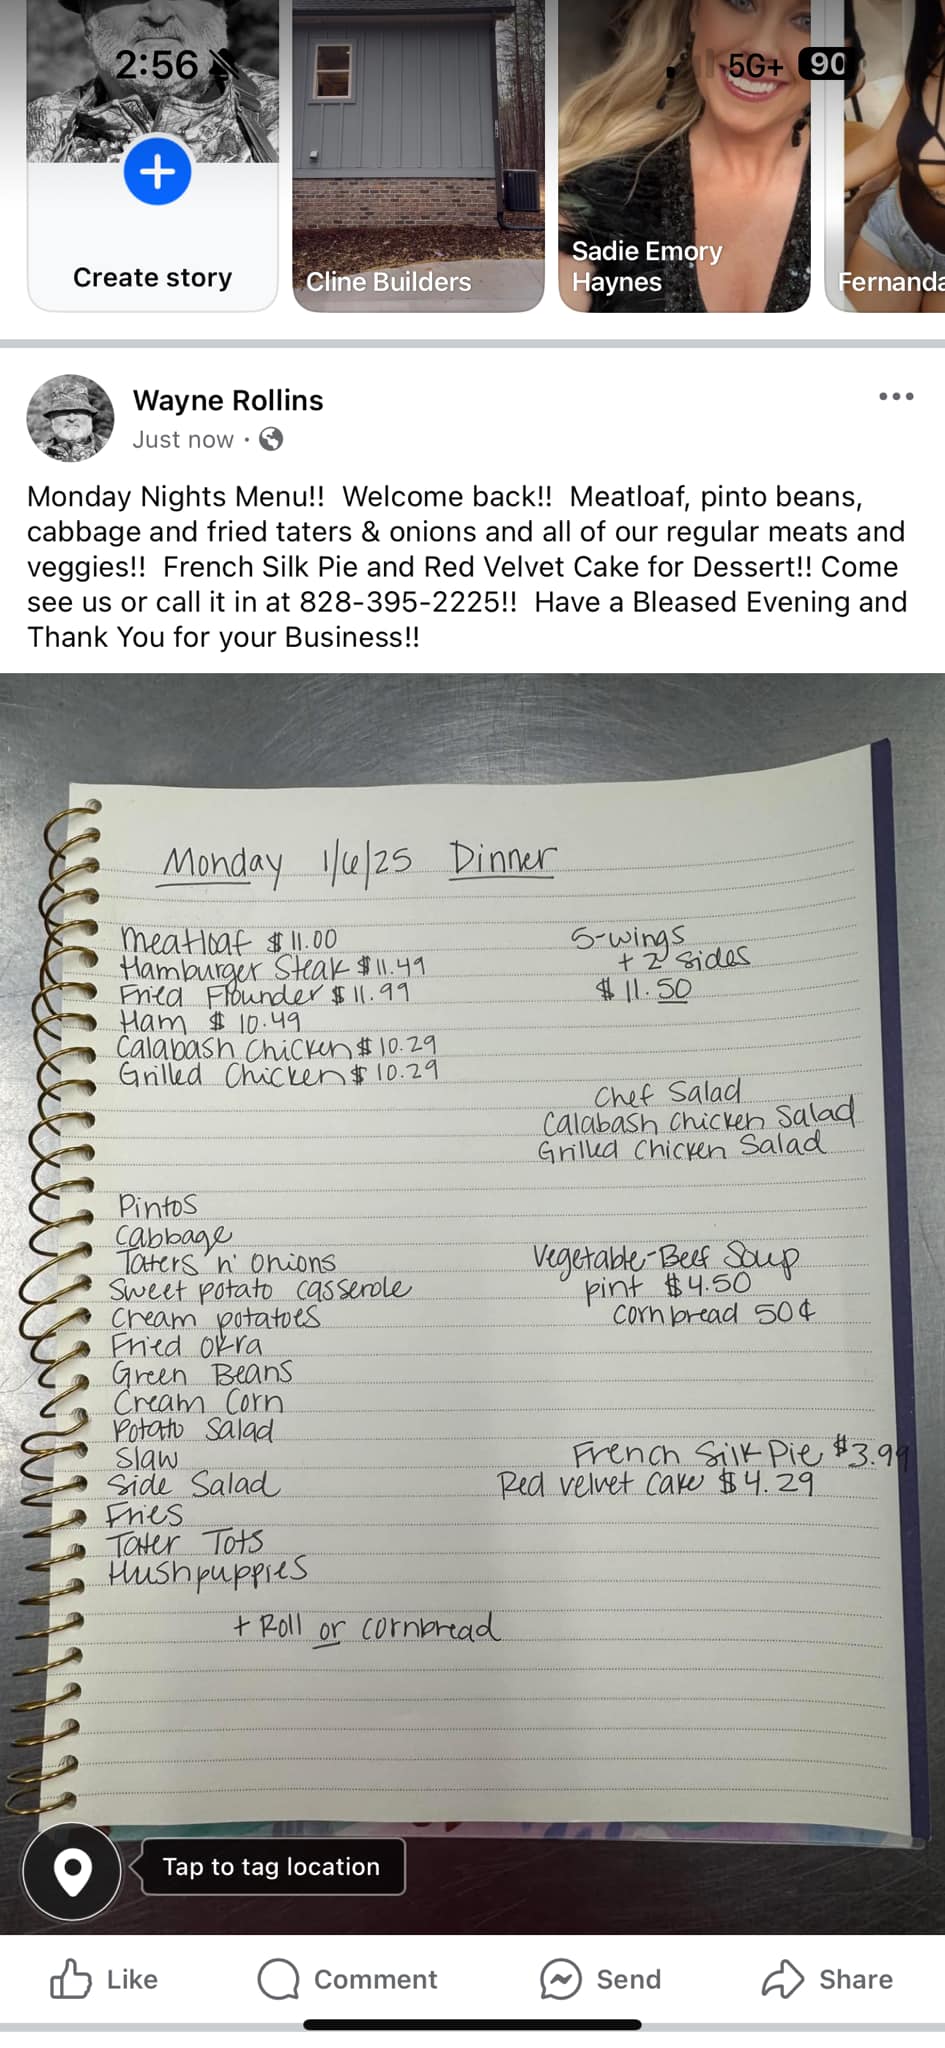 2:56
5G+
90
Create story
Cline Builders
Sadie Emory
Haynes
Fernanda
Wayne Rollins
Just now ·
Monday Nights Menu!!  Welcome back!!  Meatloaf, pinto beans,
cabbage and fried taters & onions and all of our regular meats and
veggies!!  French Silk Pie and Red Velvet Cake for Dessert!! Come
see us or call it in at 828-395-2225!!  Have a Bleased Evening and
Thank You for your Business!!
Monday 1/6/25 Dinner
Meatloaf $11.00
Hamburger Steak $11.49
Fried Flounder $11.99
Ham $10.49
Calabash Chicken $10.29
Grilled Chicken $10.29
5-wings
+ 2 sides
$11.50
Chef Salad
Calabash Chicken Salad
Grilled Chicken Salad
Pintos
Cabbage
Taters n' onions
Sweet potato casserole
Cream potatoes
Fried okra
Green Beans
Cream Corn
Potato Salad
Slaw
Side Salad
Fries
Tater Tots
Hushpuppies
+ Roll or cornbread
Vegetable-Beef Soup
pint $4.50
cornbread 50¢
French Silk Pie $3.99
Red velvet cake $4.29
Tap to tag location
Like
Comment
Send
Share